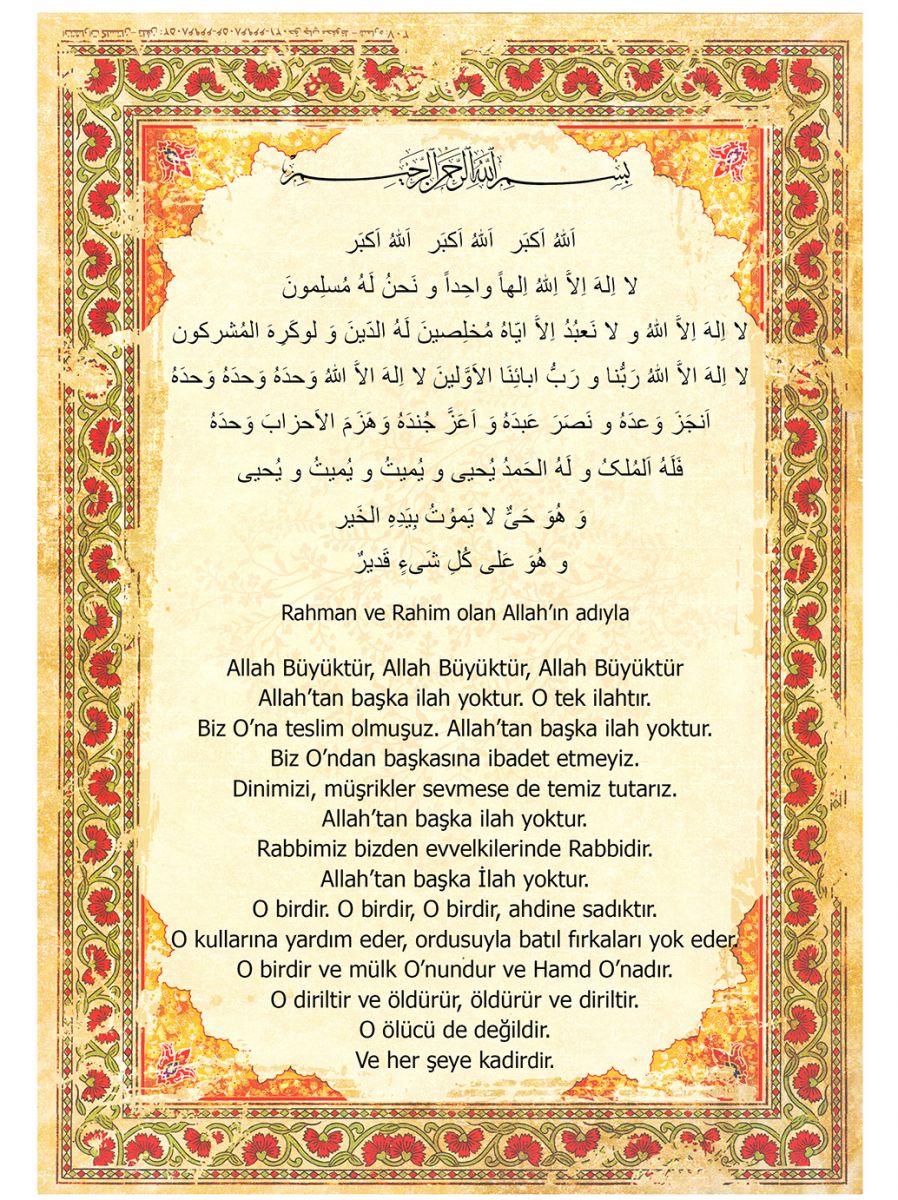 بِسْمِ اللَّهِ الرَّحْمَنِ الرَّحِيمِ
اَللهُ اَکبَر اَللهُ اَکبَر اَللهُ اَکبَر
لا اِلهَ اِلاَّ اِللهُ اِلهاً واحِداً و نَحنُ لَهُ مُسلِمونَ
لا اِلهَ اِلاَّ اللهُ و لا نَعبُدُ اِلاَّ ایّاهُ مُخلِصینَ لَهُ الدّینَ وَ لَوکَرِهَ المُشرکون
لا اِلهَ الاَّ اللهُ رَبُّنا و رَبُّ ابائِنَا الاَوَّلینَ لا اِلهَ الاَّ اللهُ وَحدَهُ وَحدَهُ وَحدَهُ
اَنجَزَ وَعدَهُ و نَصَرَ عَبدَهُ وَ اَعَزَّ جُندَهُ وَهَزَمَ الاَحزابَ وَحدَهُ
فَلَهُ اَلمُلکُ و لَهُ الحَمدُ یُحیی و یُمیتُ و یُمیتُ و یُحیی
وَ هُوَ حَیٌّ لا یَموُتُ بِیَدِهِ الخَیر
و هُوَ عَلی کُلِ شَیءٍ قَدیرٌ
Rahman ve Rahim olan Allah’ın adıyla
Allah Büyüktür, Allah Büyüktür, Allah Büyüktür
Allah’tan başka ilah yoktur. O tek ilahtır.
Biz O’na teslim olmuşuz. Allah’tan başka ilah yoktur.
Biz O’ndan başkasına ibadet etmeyiz.
Dinimizi, müşrikler sevmese de temiz tutarız.
Allah’tan başka ilah yoktur.
Rabbimiz bizden evvelkilerinde Rabbidir.
Allah’tan başka İlah yoktur.
O birdir. O birdir, O birdir, ahdine sadıktır.
O kullarına yardım eder, ordusuyla batıl fırkaları yok eder.
O birdir ve mülk O’nundur ve Hamd O’nadır.
O diriltir ve öldürür, öldürür ve diriltir.
O ölücü de değildir.
Ve her şeye kadirdir.